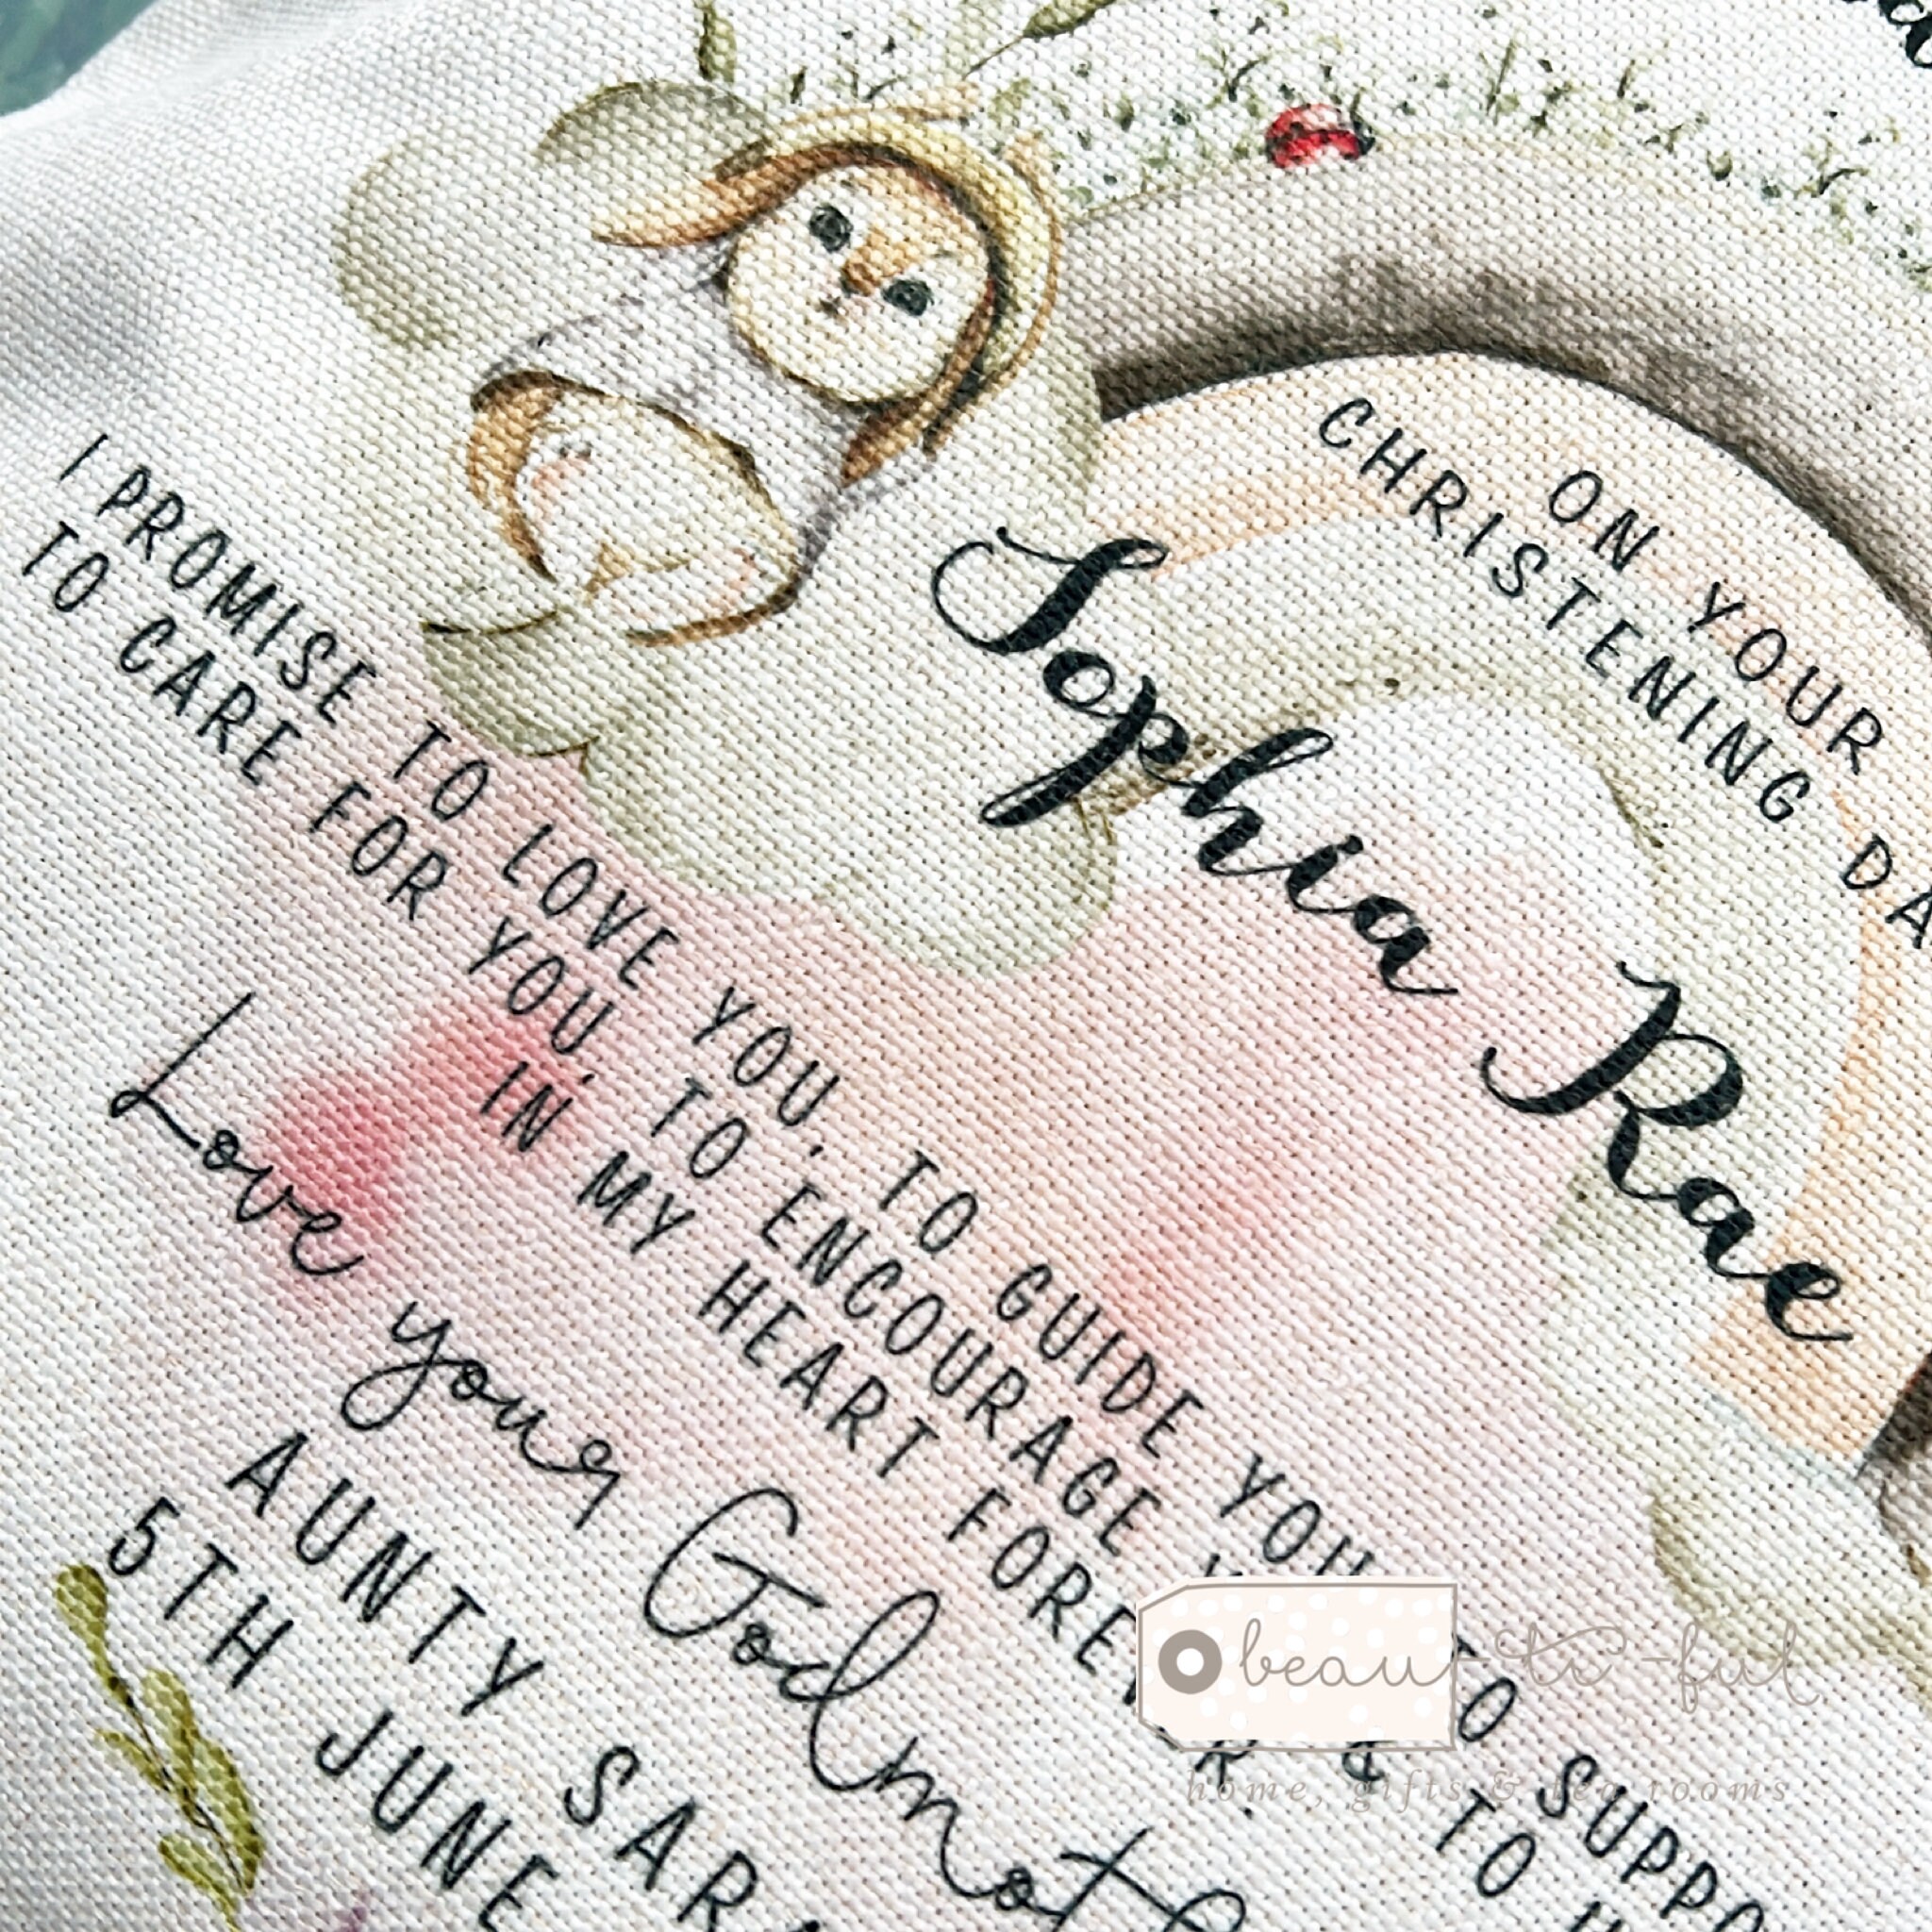 ON YOUR
CHRISTENING
Sophia Rae
I PROMISE TO LOVE YOU, TO GUIDE YOU
TO CARE FOR YOU, TO ENCOURAGE TO SUPPO
IN MY HEART FOREVER. & TO
Love your
AUNTY
5TH JUNE
beau-ti-ful
home, gifts & tea rooms